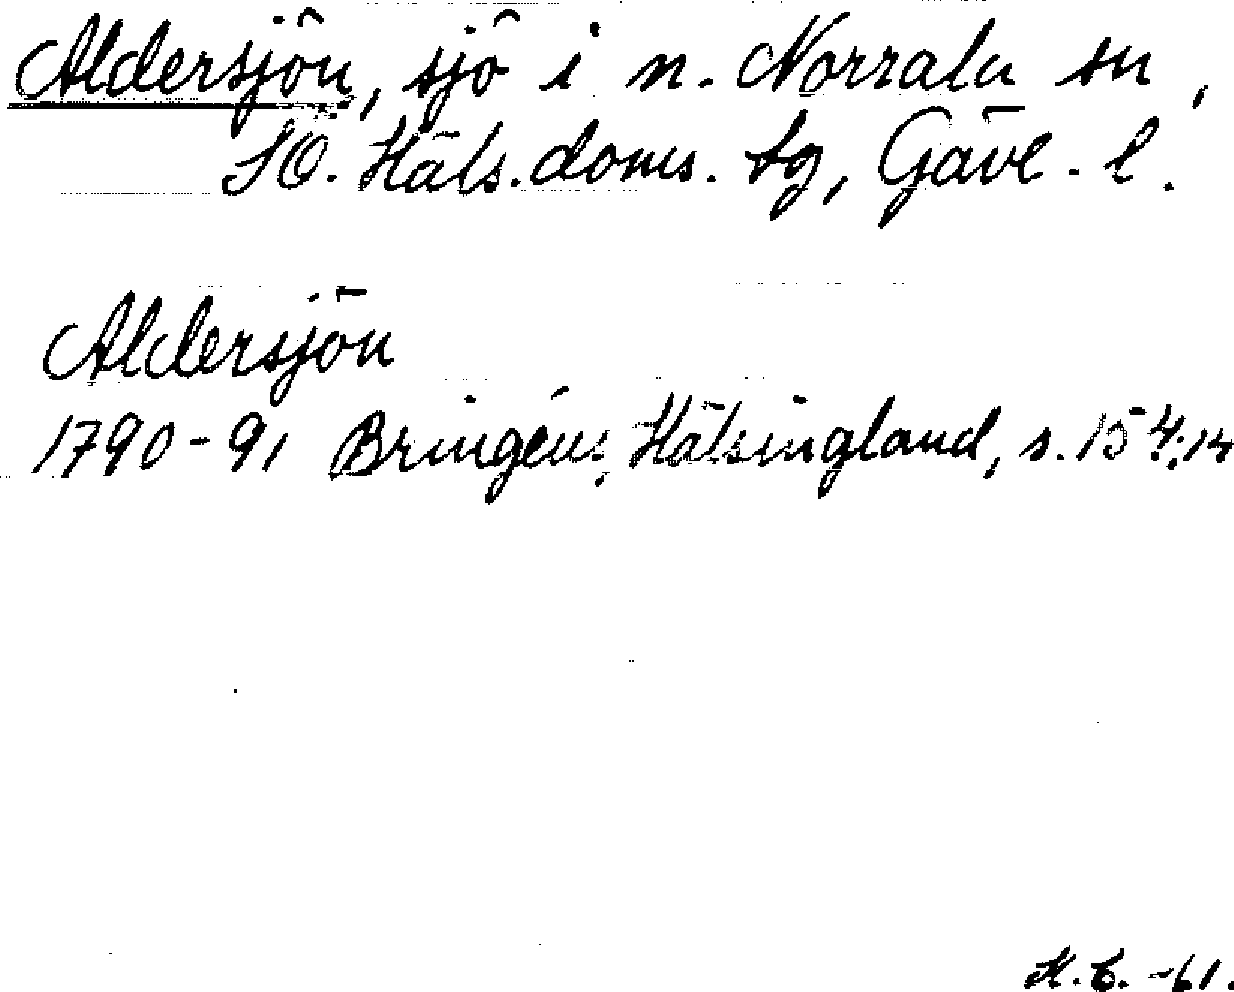 Aldersjön, sjö i n. Norrala sn,
SO. Häls. doms. tg, Gävl. l.
Aldersjön
1790-91 Bringéus, Hälsingland, s. 154; 14
-61.